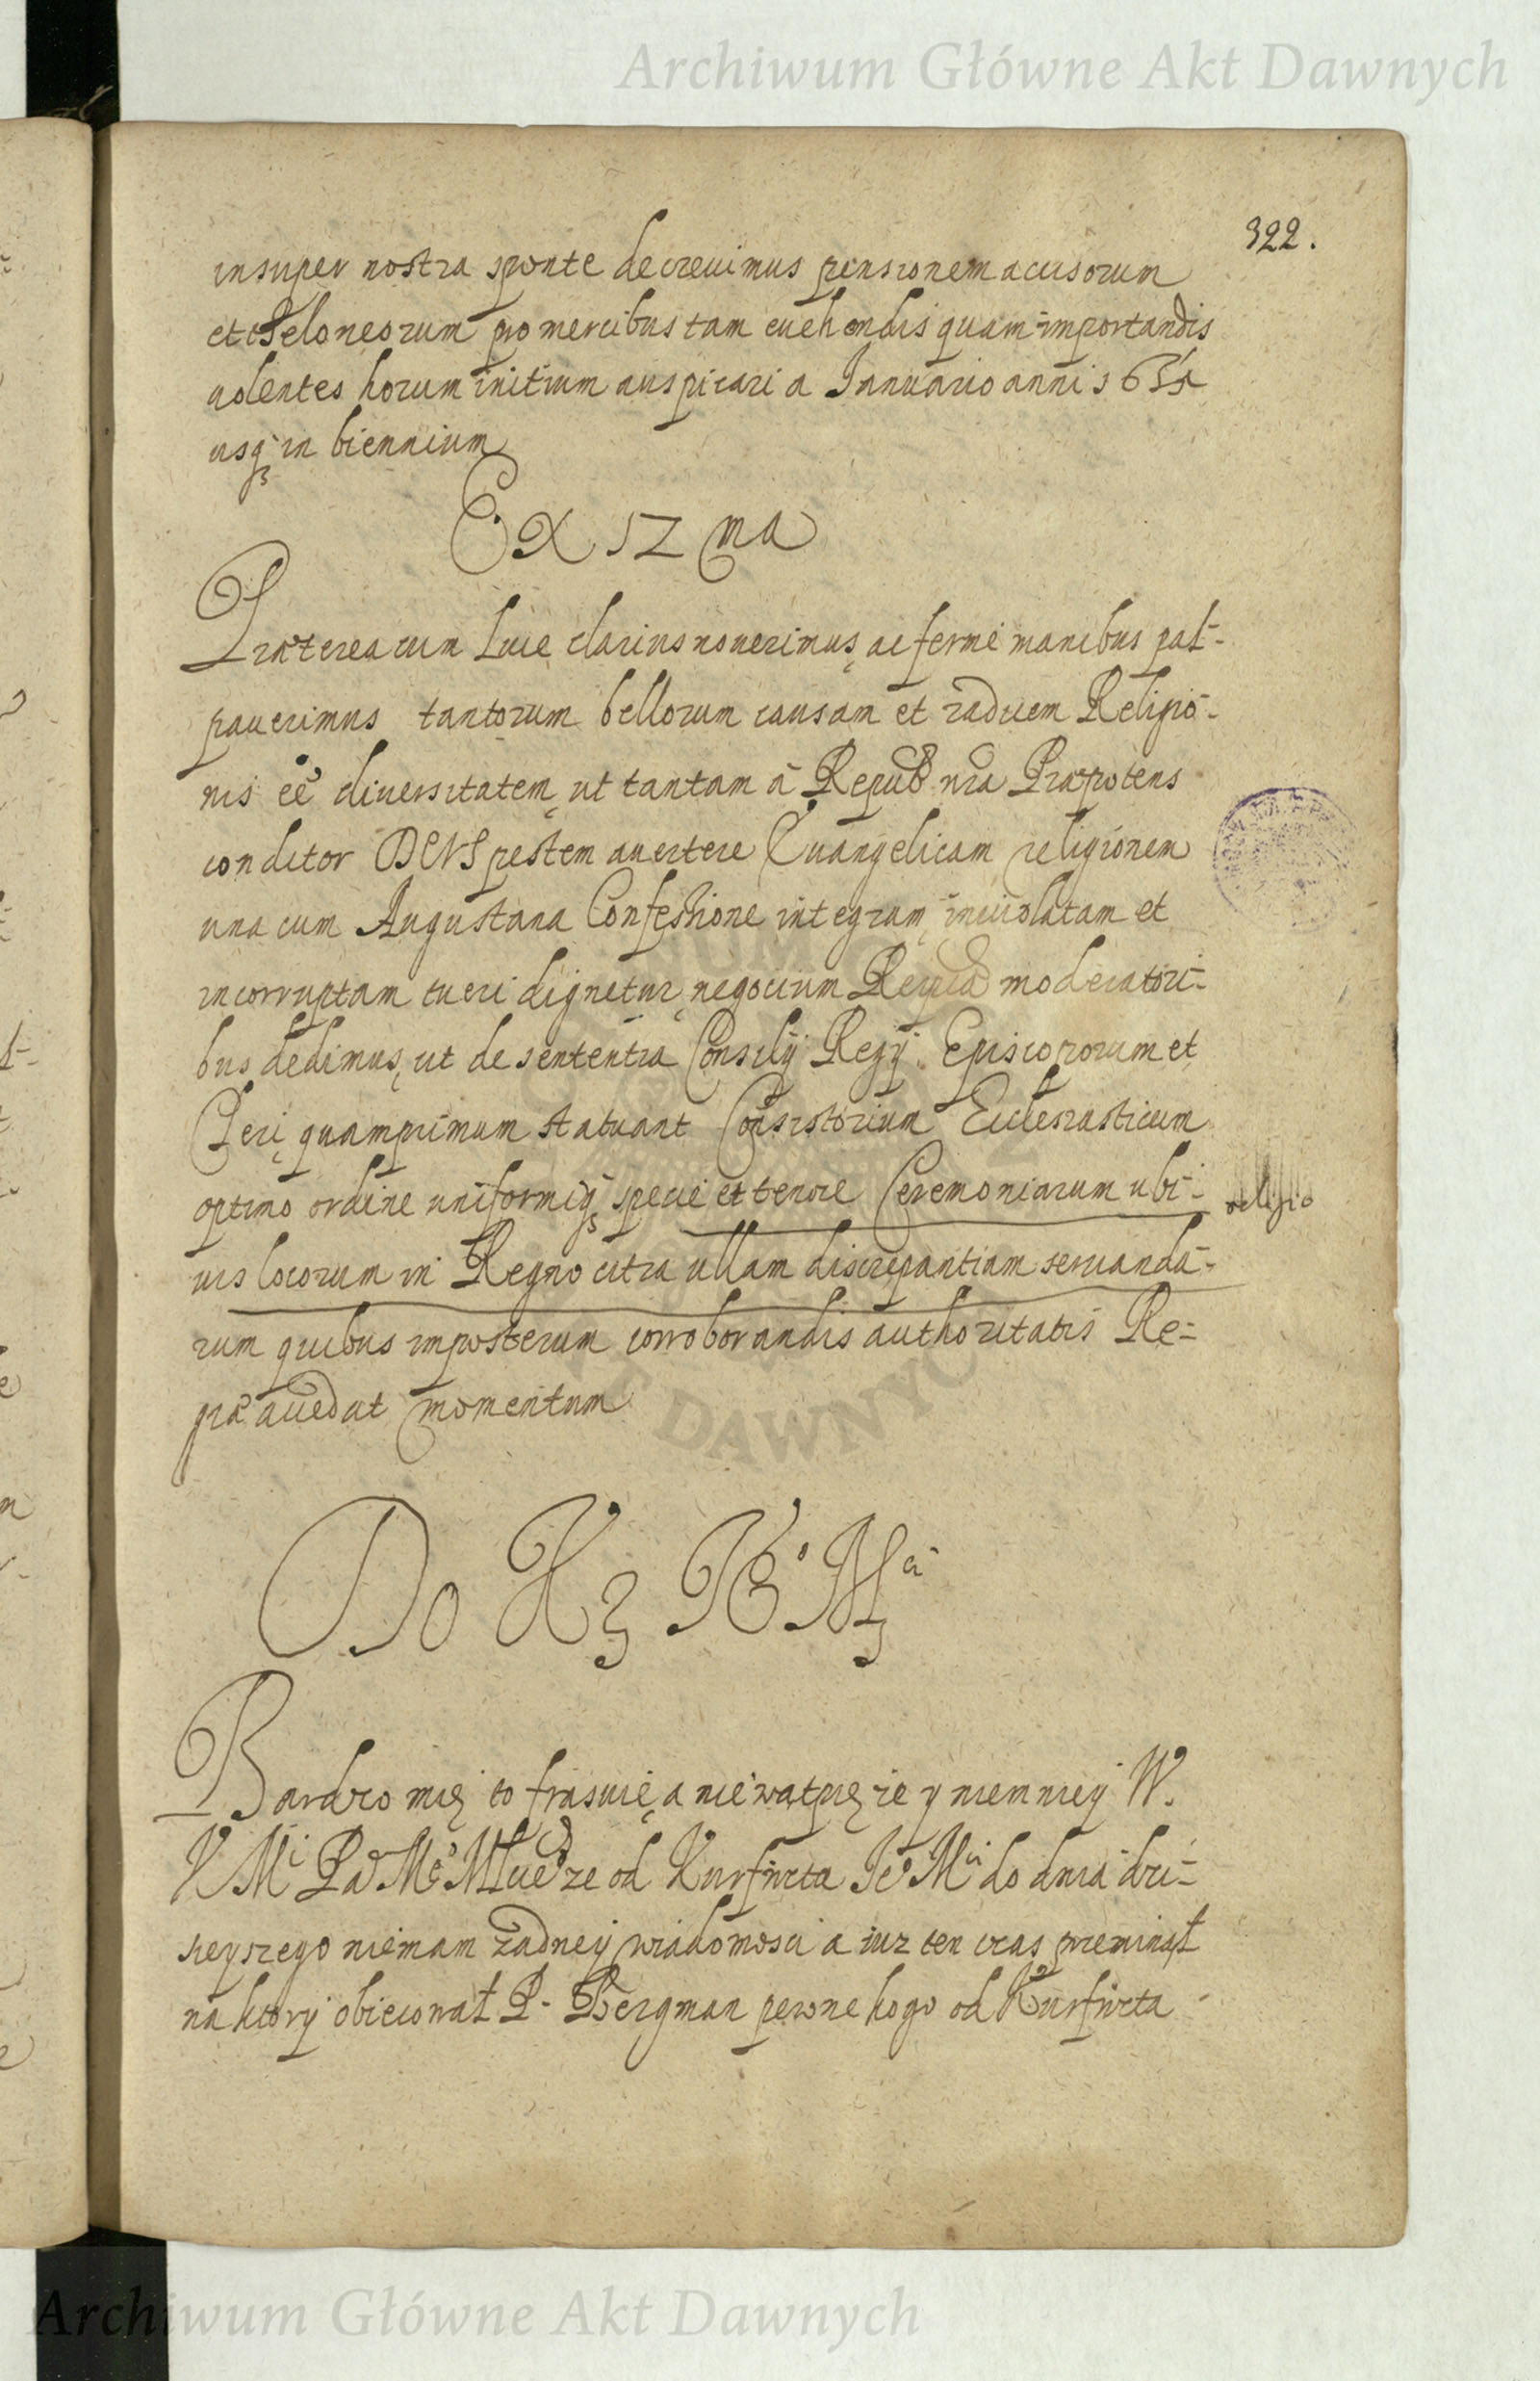 Archiwum Główne Akt Dawnych
322.
insuper nostra sponte decreuimus pensionem accisorum
et teloneorum pro mercibus tam euehendis quam importandis
uolentes horum initium auspicari a Januario anni
usq in biennium
Ex 12 ma
Præterea cum Luce clarius nouerimus, ac ferme manibus pal-
pauerimus tantorum bellorum causam et radicem Religio-
nis eē diuersitatem, ut tantam à Repub nra Præpotens
conditor DEUS pestem auertere Euangelicam religionem
una cum Augustana Confessione integram, inuiolatam et
incorruptam tueri dignetur, negocium moderatori-
bus dedimus, ut de sententia Consilij Regij Episcoporum et
Cleri, quamprimum statuant Consistorium Ecclesiasticum
optimo ordine uniformiq specie et tenore Ceremoniarum ubi-
religio
uis locorum in Regno citra ullam discrepantiam seruanda-
rum quibus imposterum corroborandis authoritatis Re-
giæ accedat momentum
Do X
Bardzo mię to frasuie, a niewątpię że y niemniey W.
K Mci ze od Kurfirszta Je° Mci do dnia dzi-
sieyszego niemam żadney wiadomosci a iuz ten czas przeminął
na ktory obiecował P. Bergman pewne kogo od Kurfirszta
ARCHIWUM GŁÓWNE AKT DAWNYCH
Archiwum Główne Akt Dawnych